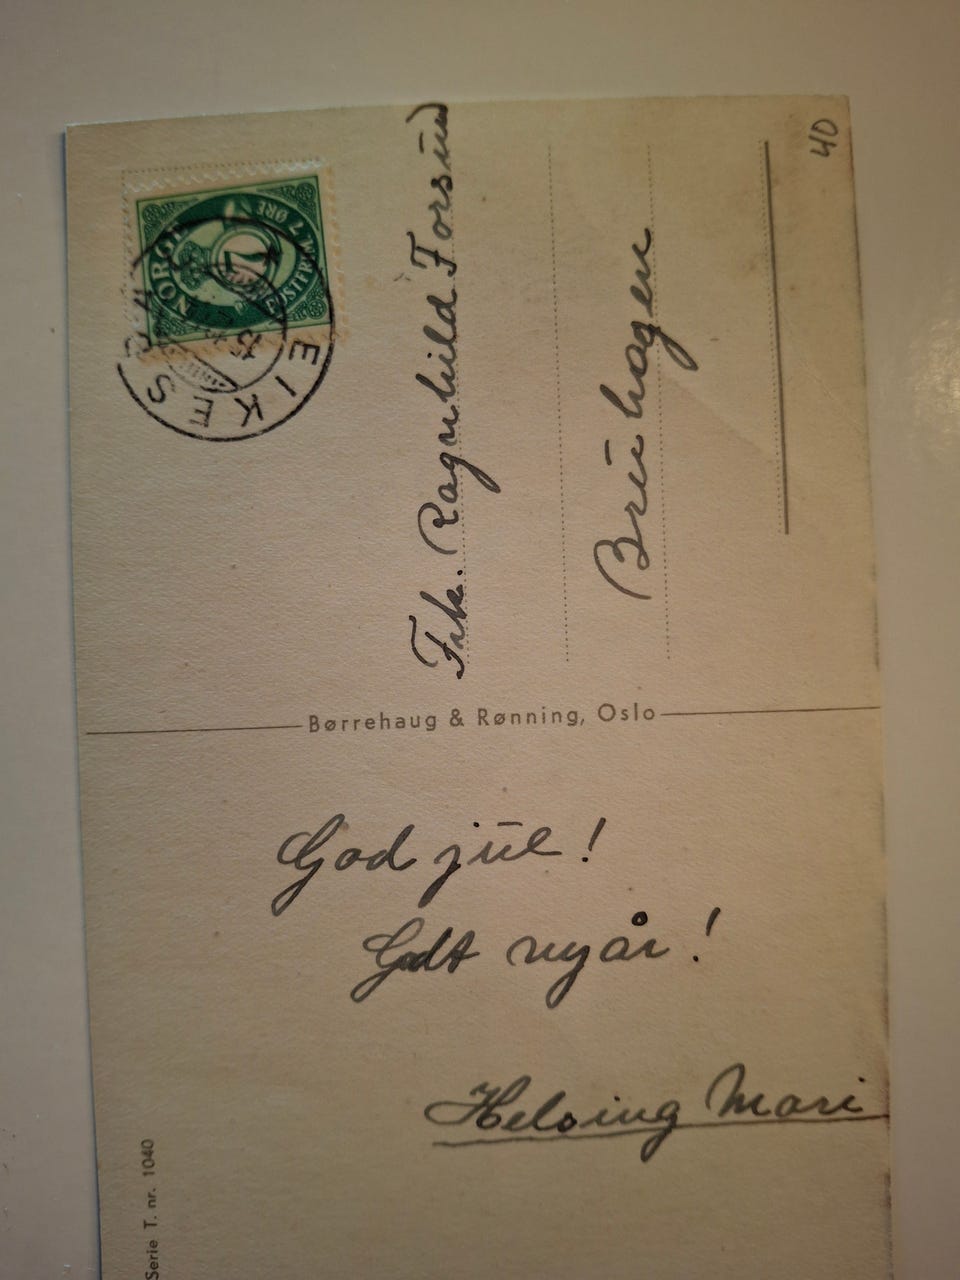 God jul!
Godt nyår!
Helsing Mari
Børrehaug & Rønning, Oslo
Serie T. nr. 1040
Frk. Ragnhild Forsund
Bruhagen
40
NORGE
7
ØRE
EIKESDAL